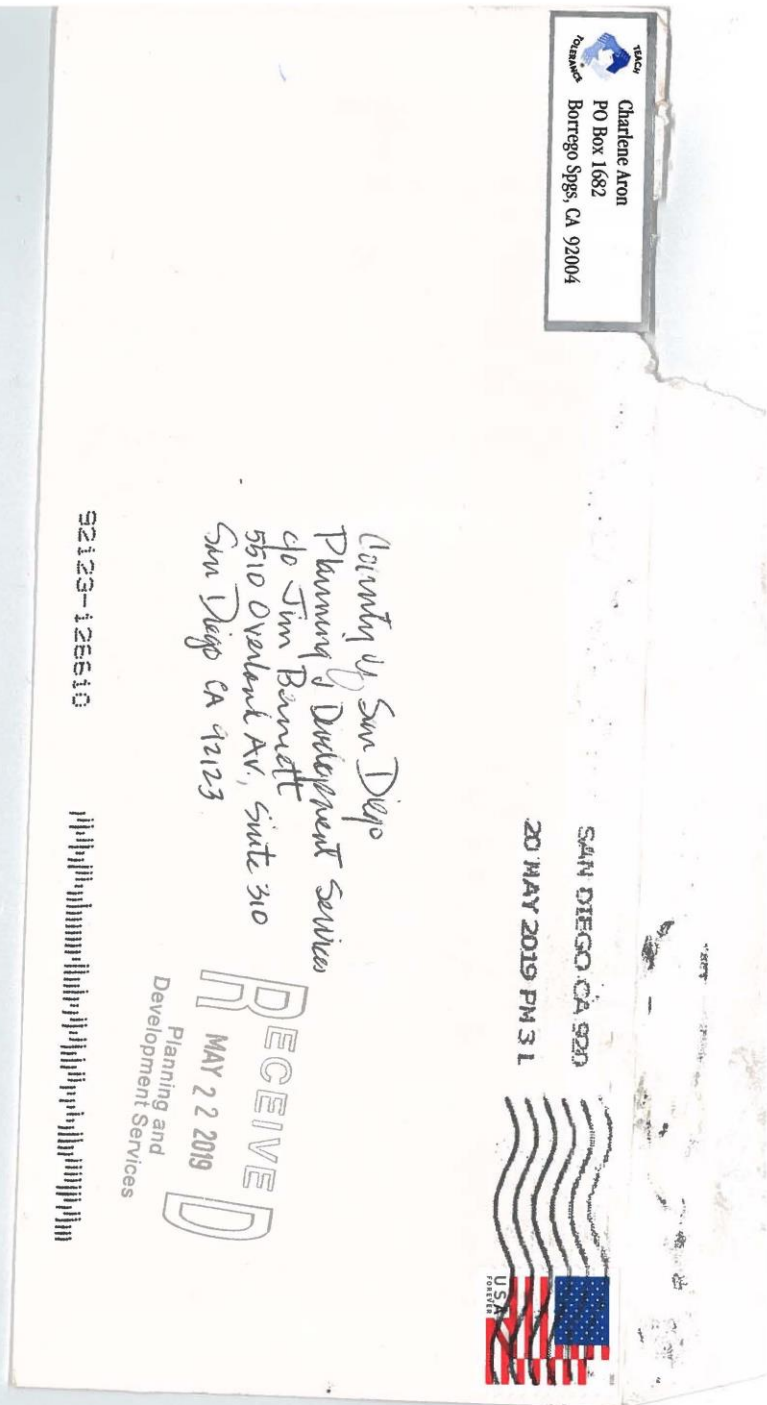 TEACH
TOLERANCE
Charlene Aron
PO Box 1682
Borrego Spgs, CA 92004
SAN DIEGO CA 920
20 MAY 2019 PM 3 L
USA
FOREVER
County of San Diego
Planning & Development Services
c/o Jim Bennett
5510 Overland Av., Suite 310
San Diego CA 92123
RECEIVED
MAY 22 2019
Planning and
Development Services
92123-126610